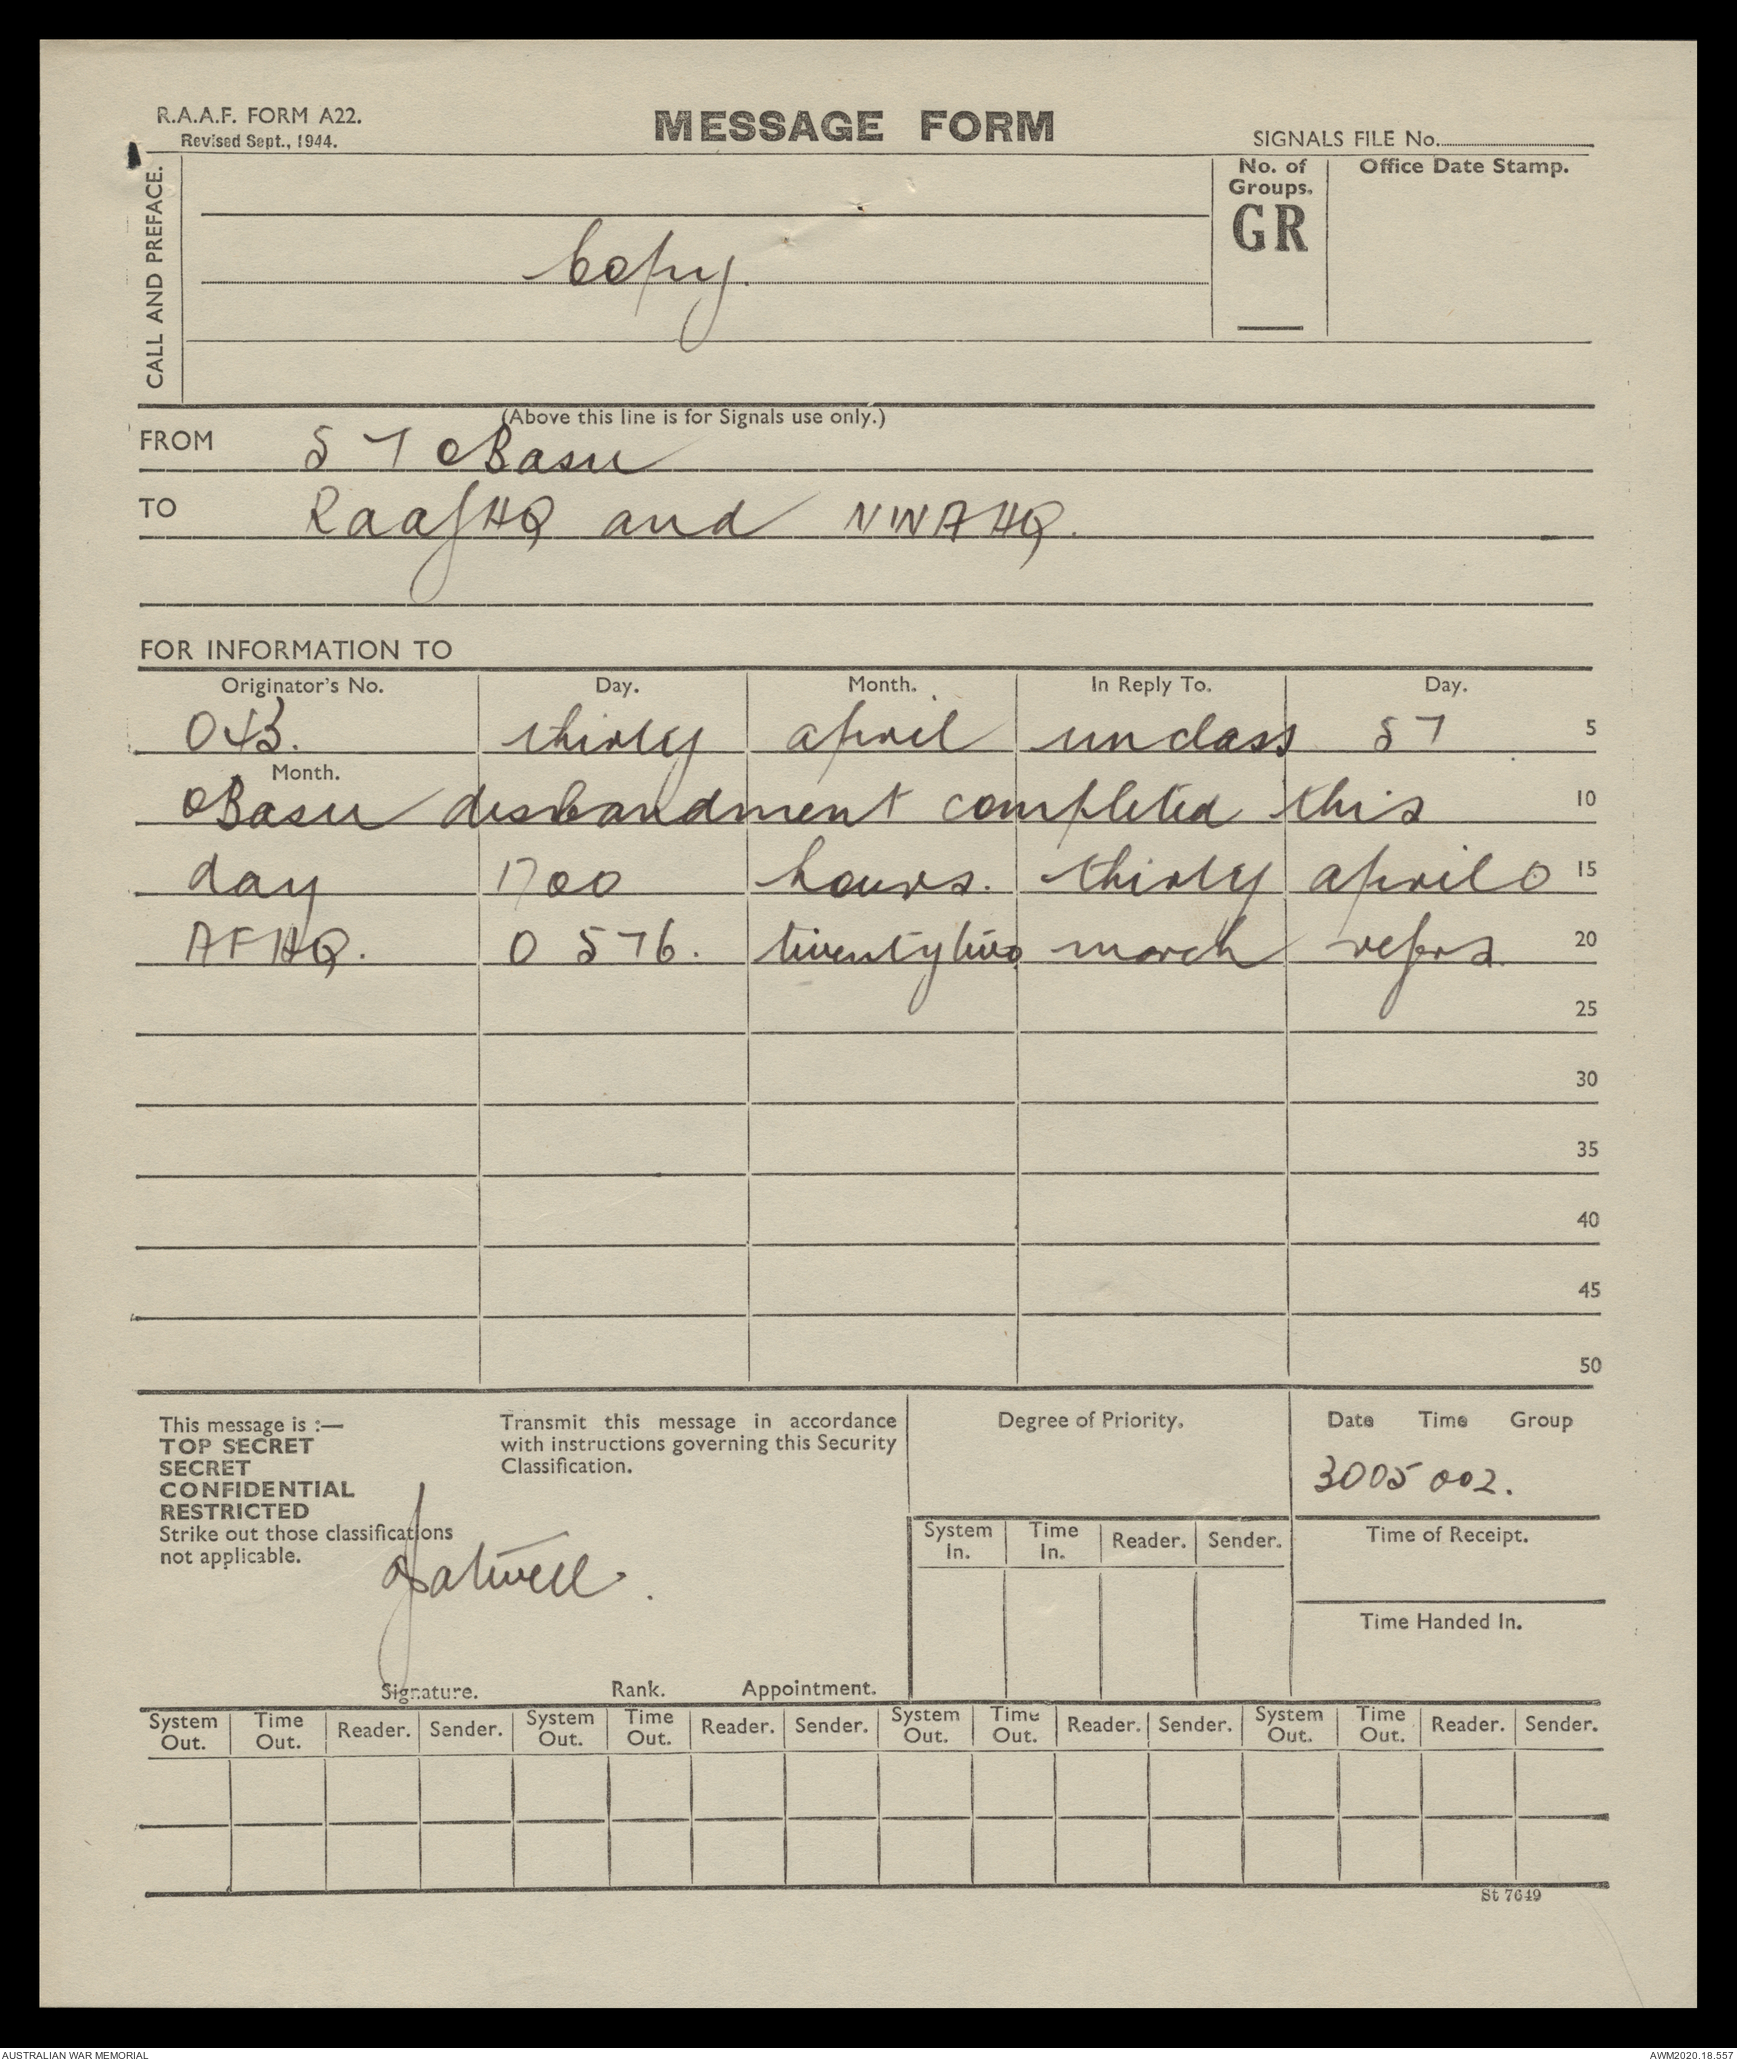 R.A.A.F. FORM A22.
Revised Sept., 1944.
MESSAGE FORM
SIGNALS FILE No.
CALL AND PREFACE.
No. of Groups.
GR
Office Date Stamp.
Copy.
(Above this line is for Signals use only.)
FROM 57 OBasu
TO RaafHQ and NWAHQ.
FOR INFORMATION TO
Originator's No. Day. Month. In Reply To. Day.
043. thirty april unclass 57 5
Month.
OBasu disbandment completed this 10
day 1700 hours. thirty april 0 15
AFHQ. 0576. twentytwo march refers. 20
25
30
35
40
45
50
This message is :—
TOP SECRET
SECRET
CONFIDENTIAL
RESTRICTED
Strike out those classifications
not applicable.
Transmit this message in accordance
with instructions governing this Security
Classification.
Degree of Priority.
Date Time Group
3005002.
System In. Time In. Reader. Sender.
Time of Receipt.
Time Handed In.
Signature. Rank. Appointment.
System Out. Time Out. Reader. Sender. System Out. Time Out. Reader. Sender. System Out. Time Out. Reader. Sender. System Out. Time Out. Reader. Sender.
St 7649
AUSTRALIAN WAR MEMORIAL
AWM2020.18.557